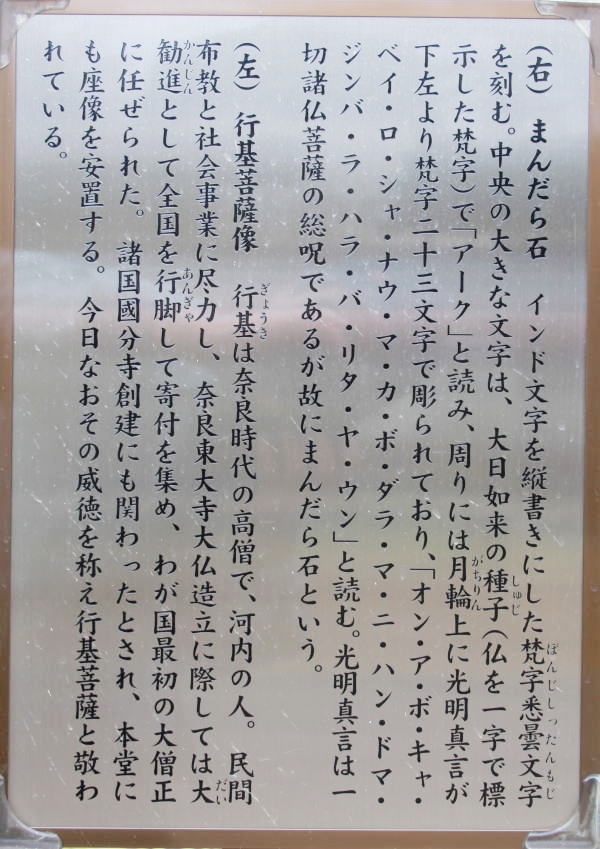 （右）　まんだら石　インド文字を縦書きにした梵字悉曇文字
を刻む。中央の大きな文字は、大日如来の種子（仏を一字で標
示した梵字）で「アーク」と読み、周りには月輪上に光明真言が
下左より梵字二十三文字で彫られており、「オン・ア・ボ・キャ・
ベイ・ロ・シャ・ナウ・マ・カ・ボ・ダラ・マ・ニ・ハン・ドマ・
ジンバ・ラ・ハラ・バ・リタ・ヤ・ウン」と読む。光明真言は一
切諸仏菩薩の総呪であるが故にまんだら石という。
（左）　行基菩薩像　行基は奈良時代の高僧で、河内の人。民間
布教と社会事業に尽力し、奈良東大寺大仏造立に際しては大
勧進として全国を行脚して寄付を集め、わが国最初の大僧正
に任ぜられた。諸国國分寺創建にも関わったとされ、本堂に
も座像を安置する。今日なおその威徳を称え行基菩薩と敬わ
れている。
ぼんじしったんもじ
しゅじ
がちりん
ぎょうき
だい
かんじん
あんぎゃ